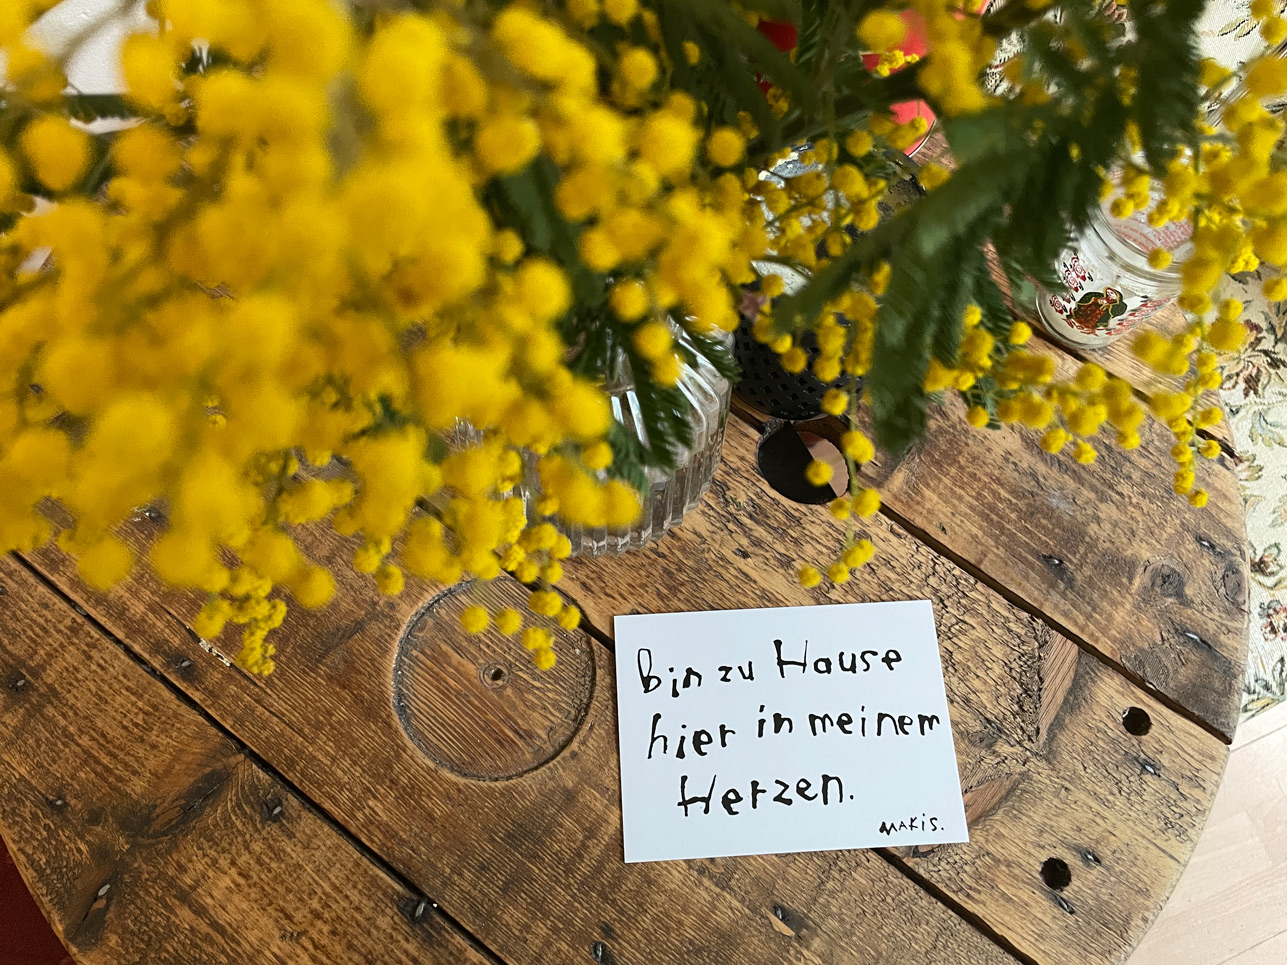 Bin zu Hause
hier in meinem
Herzen.
MAKIS.